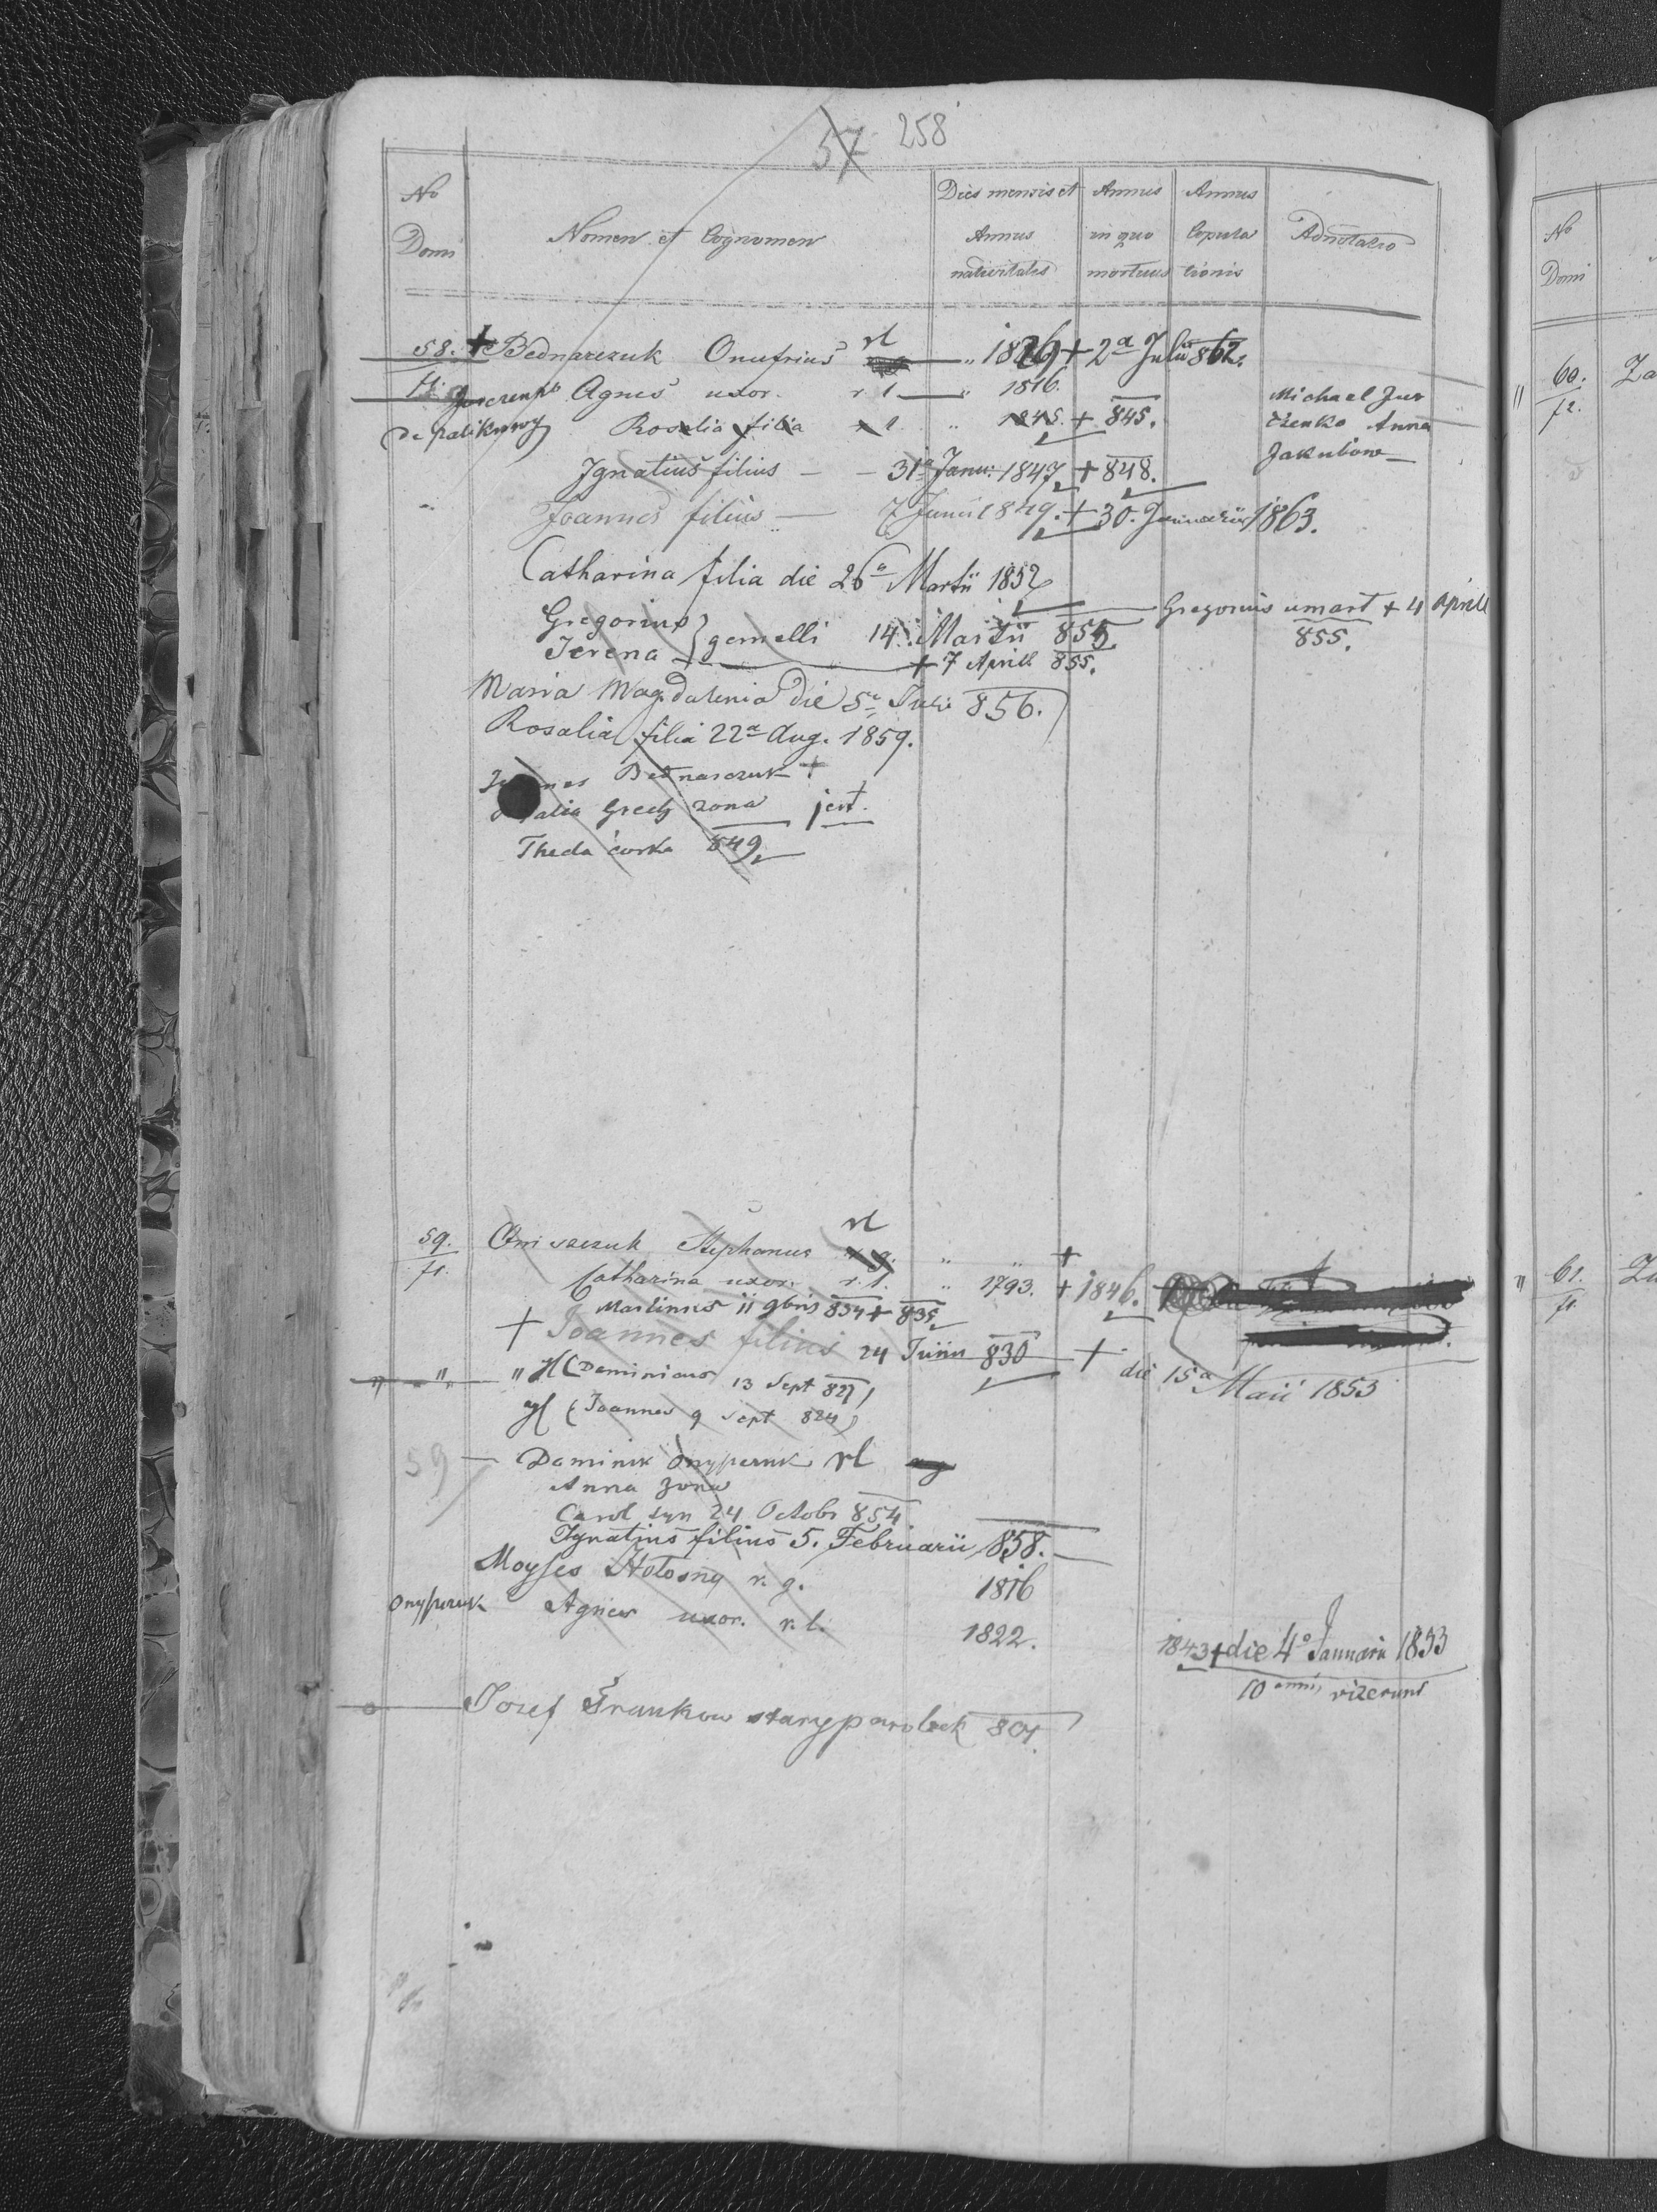 57 258
No Domi
Nomen et Cognomen
Dies mensis et Annus nativitatis
Annus in quo mortuus
Annus Copulationis
Adnotatio
58. + Bednarczuk Onufrius rl „ 1826 + 2a Julii 862.
71. Jurczenko Agnes uxor. r l. „ 1816.
Michael Jur
de palikrowy Rosalia filia r l. „ 1845. + 845.
czenko Anna
Jakubow
Ignatius filius — 31a Janu: 1847 + 848.
Joannes filius — 7 Junii 1849. + 30. Januarii 1863.
Catharina filia die 26a Martii 1852
Gregorius } gemelli 14. Martii 855.
Gregorius umart + 4 Aprill
855.
Irena + 7 Aprill 855.
Maria Magdalenia die 5a Julii 856.
Rosalia filia 22a Aug. 1859.
Bednarczuk +
Grech zona jest.
Theda córka 849
59. Oni szczuk Stephanus rl „ „ +
71. Catharina uxor. r. l. „ 1793. + 1846.
Martinus 11 9bris 834 + 835
+ Joannes filius 24 Junii 830 + die 15a Maii 1853
„ „ „ (Dominicus 13 Sept 827)
(Joannes 9 Sept 824)
59 — Dominik Onyszczuk rl
Anna zona
Carol syn 24 Octobr 854
Ignatius filius 5. Februarii 858.
Moyses Hotosny r. g. 1816
Onyszczuk Agnes uxor. r. l. 1822.
1843 + die 4o Januarii 1853
10 anni vixerunt
Jozef Srankow stary parobek 801.
No
Domi
„ 60. Za
72.
„ 61. Za
71.